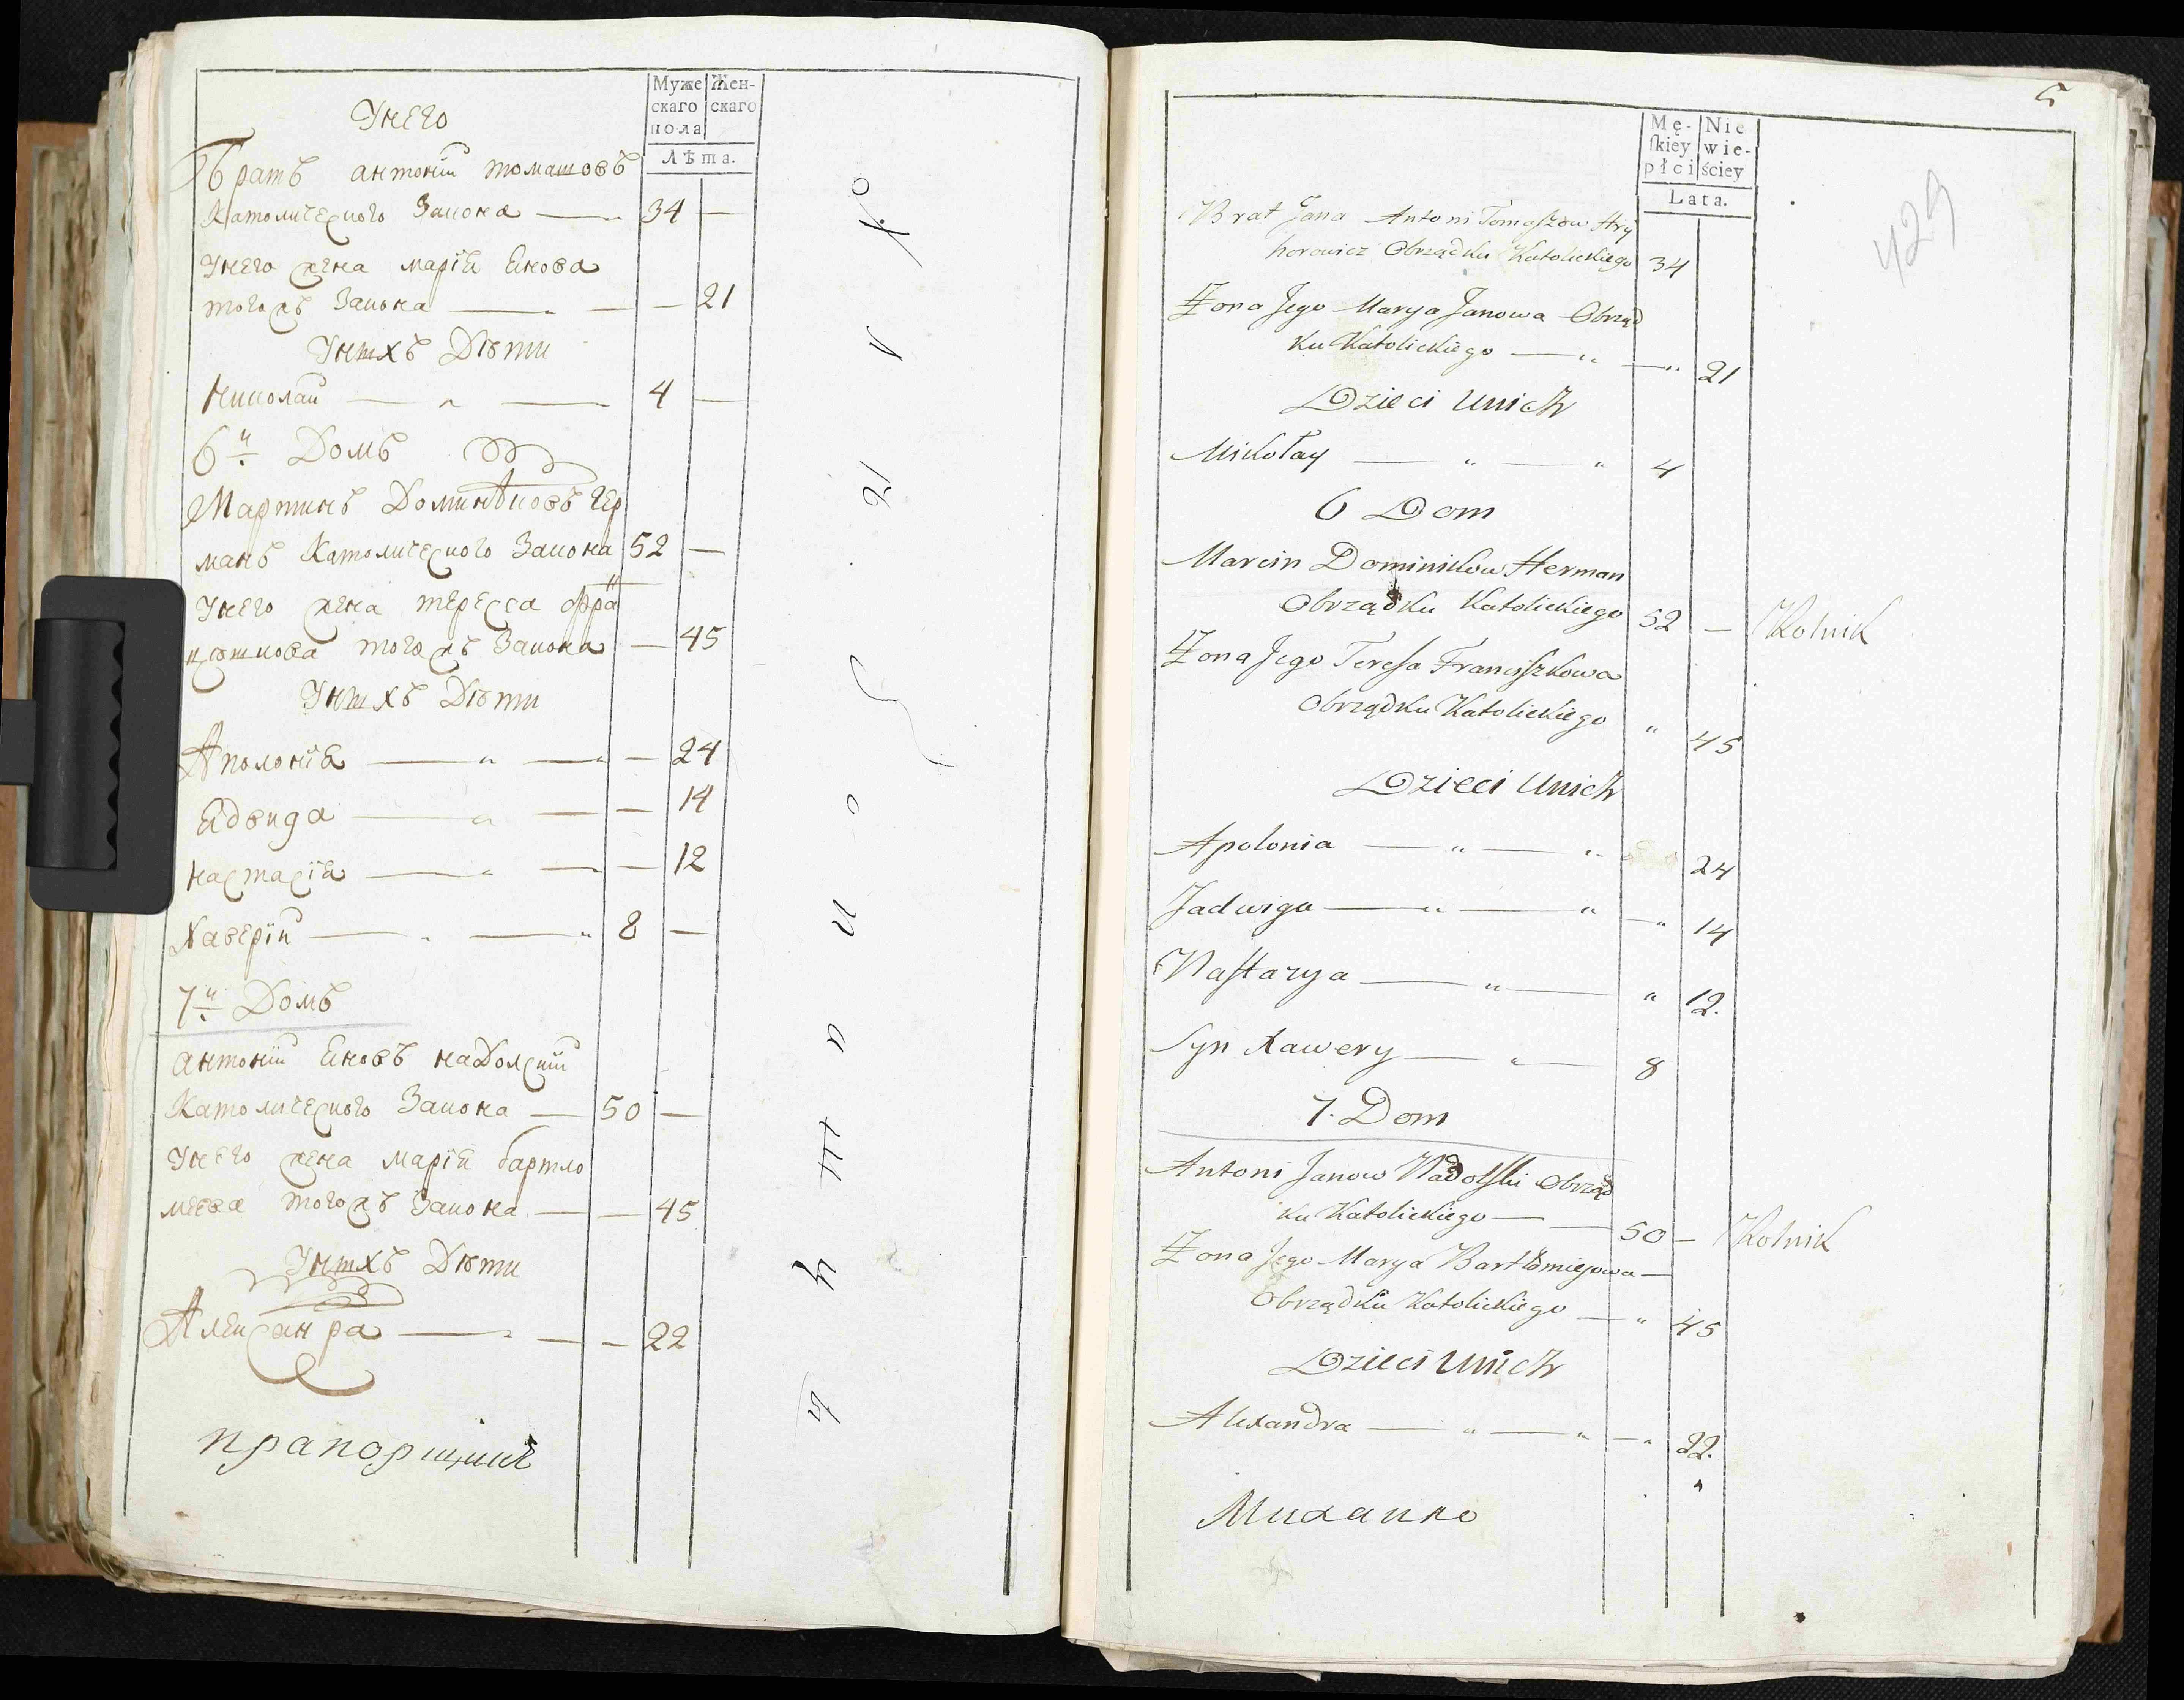 Муже
скаго
пола
Жен-
скаго
Лѣта.
Унего
Братъ антоніи томашовъ
Католического Закона — 34 —
Унего жена марія янова
тогожъ Закона — — 21
Унихъ Дѣти
николаи — „ — 4 —
6й Домъ
Мартинъ Доминѣковъ гер
манъ Католического Закона 52 —
Унего жена тересса фра
тогожъ Закона — 45
Унихъ Дѣти
Аполонія — „ — — 24
ядвига — „ — — 14
настасія — „ — — 12
Хаверіи — „ — „ 8 —
7й Домъ
антоніи яновъ надолскии
Католического Закона — 50 —
Унего жена марія бартло
меева тогожъ Закона — — 45
Унихъ Дѣти
Алексанра — „ — — 22
прапорщикъ
5
429
Mę-
ſkiey
płci
Nie
wie-
ściey
Lata.
Brat Jana Antoni Tomaſzow Hry
horowicz Obrządku Katolickiego 34
Żona Jego Marya Janowa Obrząd
ku Katolickiego — „ — „ 21
Dzieci Unich
Mikołay — „ — „ 4
6 Dom
Marcin Dominikow Herman
Obrządku Katolickiego 52 — Rolnik
Żona Jego Tereſa Franciſzkowa
Obrządku Katolickiego „ 45
Dzieci Unich
Apolonia — „ — „ 24
Jadwiga — „ — „ — „ 14
Naſtazya — „ — „ 12.
Syn Xawery — „ — 8
7. Dom
Antoni Janow Nadolſki Obrząd
ku Katolickiego — — 50 — Rolnik
Żona Jego Marya Bartłomiejowa —
Obrządku Katolickiego — „ 45
Dzieci Unich
Alexandra — „ — „ — „ 22.
Михайло